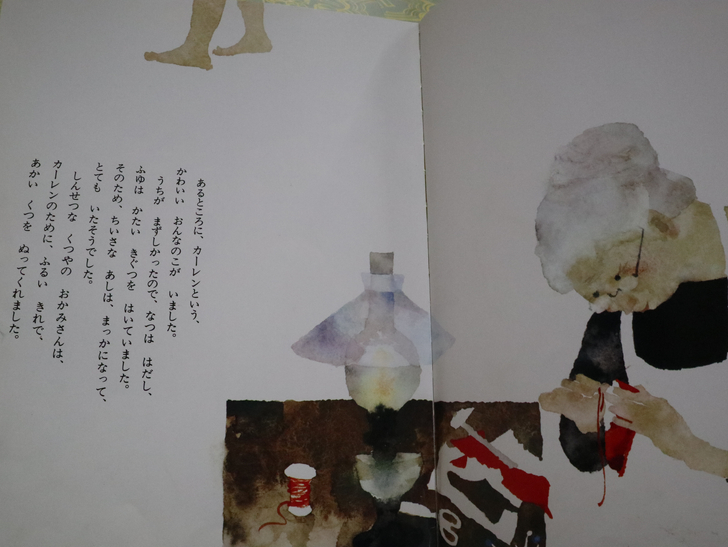 あるところに、カーレンという、
かわいい　おんなのこが　いました。
うちが　まずしかったので、なつは　はだし、
ふゆは　かたい　きぐつを　はいていました。
そのため、ちいさな　あしは、まっかになって、
とても　いたそうでした。
しんせつな　くつやの　おかみさんは、
カーレンのために、ふるい　きれで、
あかい　くつを　ぬってくれました。